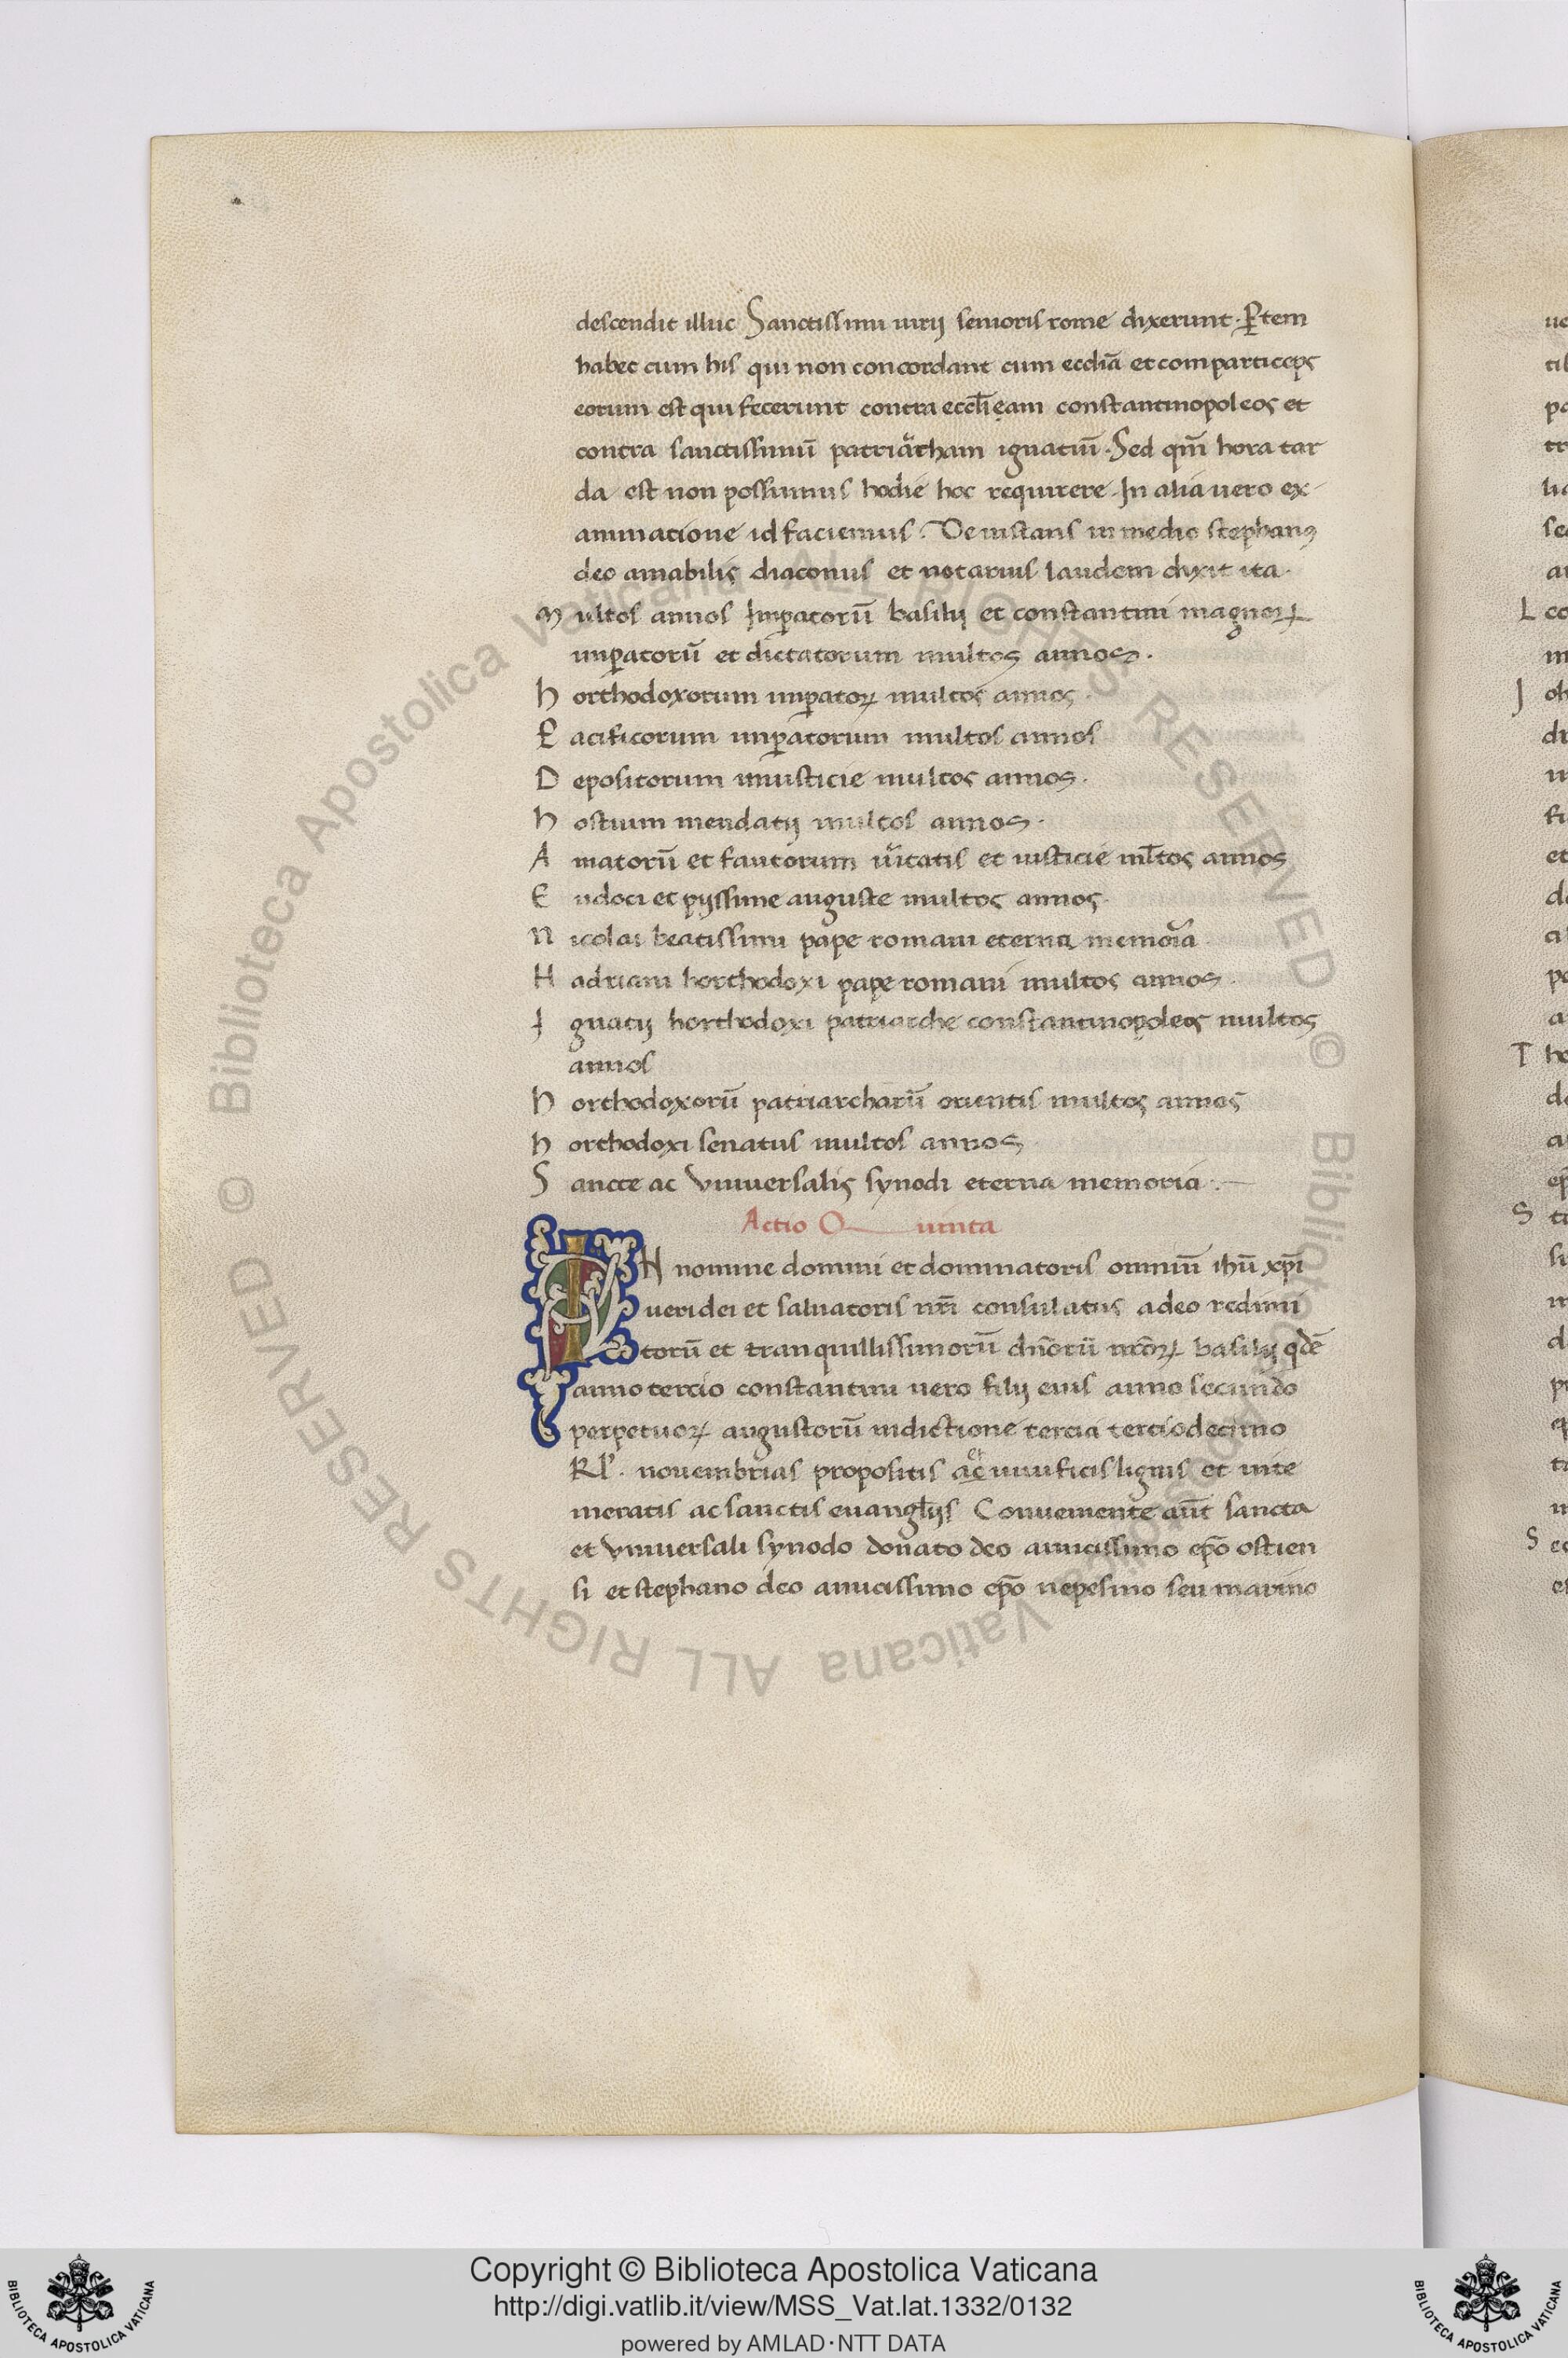 descendit illuc Sanctissimi uirij senioris rome dixerunt. Ꝑtem
habet cum his qui non concordant cum eccliā et comparticeps
eorum est qui fecerunt contra eccl̄ieam constantinopoleos et
contra sanctissimū patriarcham ignatiū. Sed qm̄ hora tar
da est non possumus hodie hoc requirere. In alia uero ex
aminatione id faciemus. De instans in medio stephanꝰ
deo amabilis diaconus et notarius laudem dixit ita.
M ultos annos Imꝑatorū basilij et constantini magnoꝝ
imꝑatorū et dictatorum multos annos.
h orthodoxorum imꝑatoꝝ multos annos.
P acificorum imꝑatorum multos annos
D epositorum iniusticie multos annos.
h ostium mendatij multos annos.
A matorū et fautorum ūitatis et iusticie ml̄tos annos
E udoci et pijssime auguste multos annos.
N icolai beatissimi pape romani eterna memoria
H adriani horthodoxi pape romani multos annos.
I gnatij horthodoxi patriarche constantinopoleos multos
annos
h orthodoxorū patriarcharū orientis multos annos
h orthodoxi senatus multos annos
S ancte ac Vniuersalis synodi eterna memoria.
Actio Quinta
IN nomine domini et dominatoris omniū ihū xp̄i
ueri dei et saluatoris nr̄i consulatus a deo redimi
torū et tranquillissimorū dn̄orū nr̄oꝝ basilij qdē
anno tercio constantini uero filij eius anno secundo
perpetuoꝝ augustorū indictione tercia terciodecimo
Kl'. nouembrias propositis ac et uiuificis lignis et inte
meratis ac sanctis euangl̄ijs Conueniente aūt sancta
et Vniuersali synodo donato deo amicissimo ep̄o ostien
si et stephano deo amicissimo ep̄o nepesino seu marino
L
J
T
S
S
© Biblioteca Apostolica Vaticana ALL RIGHTS RESERVED © Biblioteca Apostolica Vaticana ALL RIGHTS RESERVED
Copyright © Biblioteca Apostolica Vaticana
http://digi.vatlib.it/view/MSS_Vat.lat.1332/0132
powered by AMLAD·NTT DATA
BIBLIOTECA APOSTOLICA VATICANA
BIBLIOTECA APOSTOLICA VATICANA